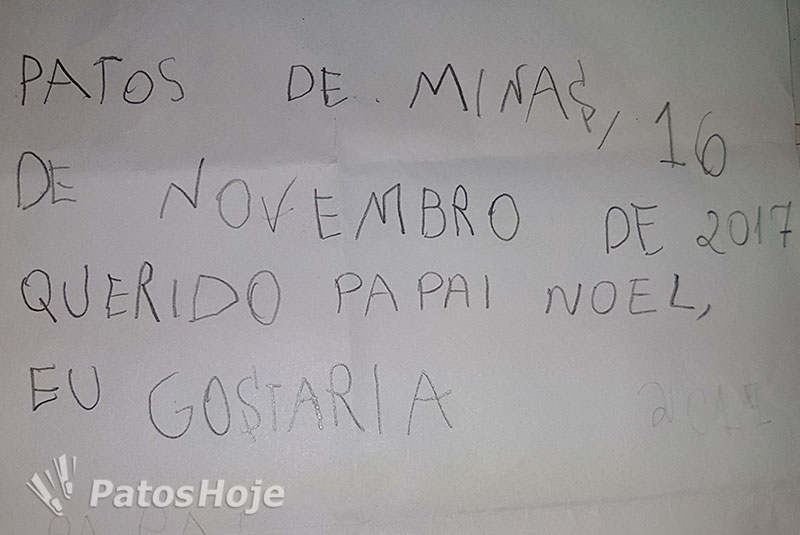 PATOS DE. MINAS, 16
DE NOVEMBRO DE 2017
QUERIDO PAPAI NOEL,
EU GOSTARIA
PatosHoje